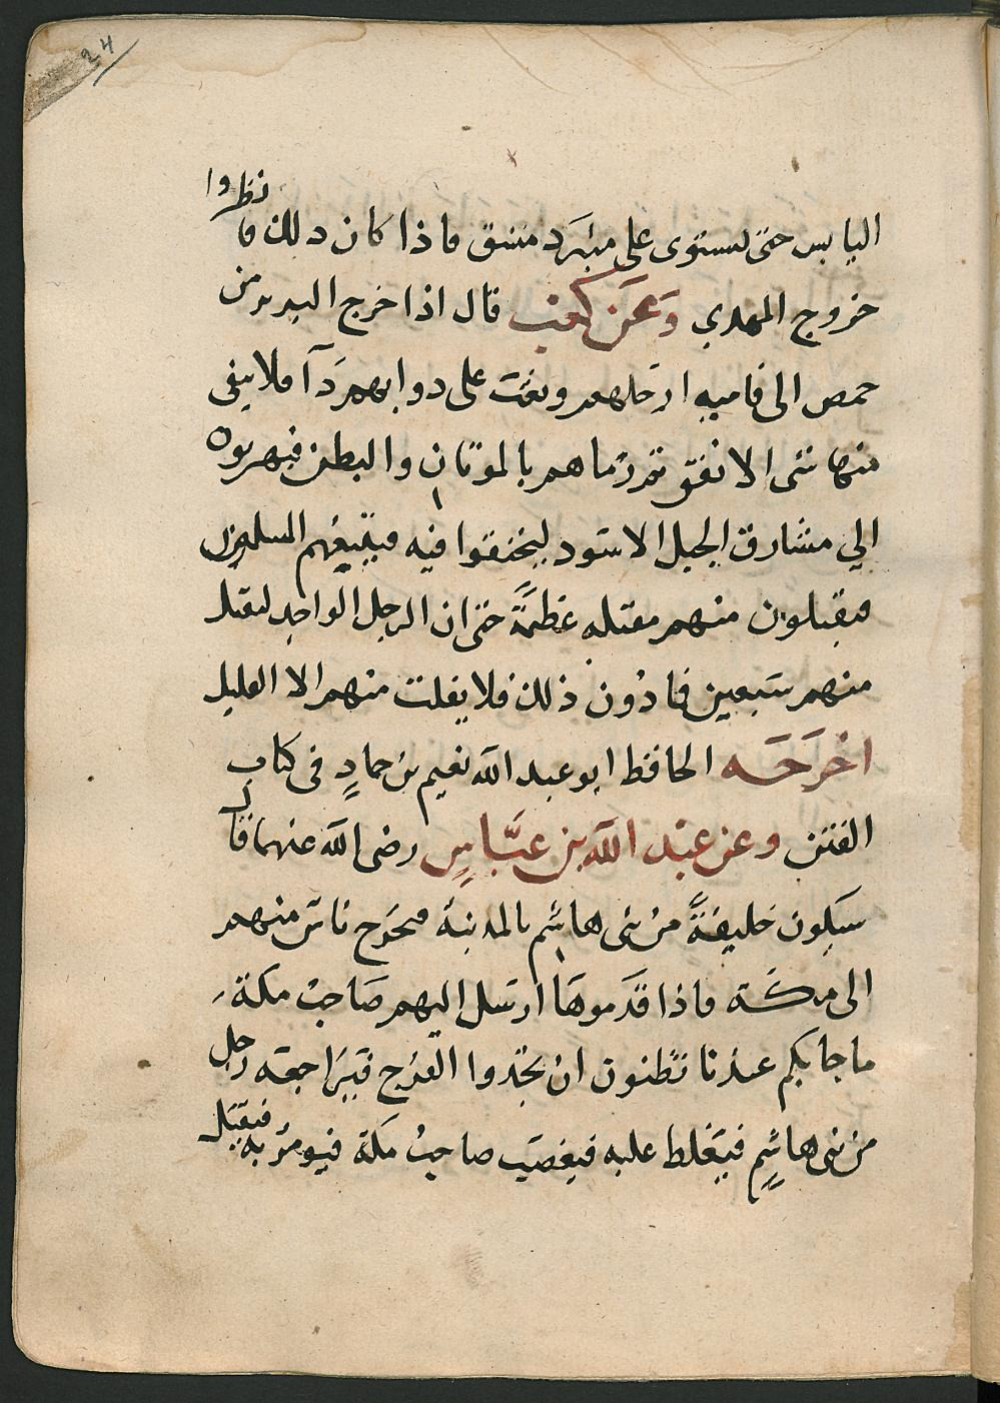 24
اليابس حتى يستوى على منبرَ دمشق فاذا كان ذلك فانظروا
خروج المهدي وَعَن كعب قال اذا خرج البربر من
حمص الى فاميه ارحلهم وبعث على دوابهم دَآ فلا يبقى
منها شى الا نفق ثم رماهم بالموتان والبطن فيهربون
الي مشارق الجبل الاسَود ليختفوا فيه فيتبعهم المسلمون
فيقتلون منهم مقتله عَظيمَةً حتى ان الرجل الواحد ليقتل
منهم سَبعين فما دُون ذلك فلا يفلت منهم الا القليل
اخرَجَه الحافظ ابو عبد الله نعيم بن حمادٍ فى كتاب
الفتن وعن عبْد الله بن عبَّاسٍ رضى الله عنهما قال
سَيكون خليفةً من بنى هاشم بالمدينة فيخرج ناسٌ منهم
الى مكَّة فاذا قدَموهَا ارسَل اليهم صَاحبُ مكة
ما جا بكم عندنا تظنون انْ تجدوا الفرج فيُراجعه رجل
من بنى هاشمٍ فيغلظ عليه فيغضَب صاحبُ مكة فيومرُ به فيقتل